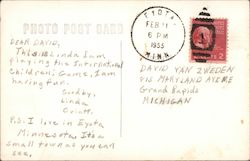 PHOTO POST CARD
EYOTA
FEB 11
6 PM
1955
MINN.
1
2
DEAR DAVID,
This is Linda I am
playing the International
Childrens Game. I am
having fun.
Goodby,
Linda
P.S. I live in Eyota
Minnesota. Its a
small town as you can
see.
DAVID VAN ZWEDEN
MARYLAND AVE NE
Grand Rapids
MICHIGAN